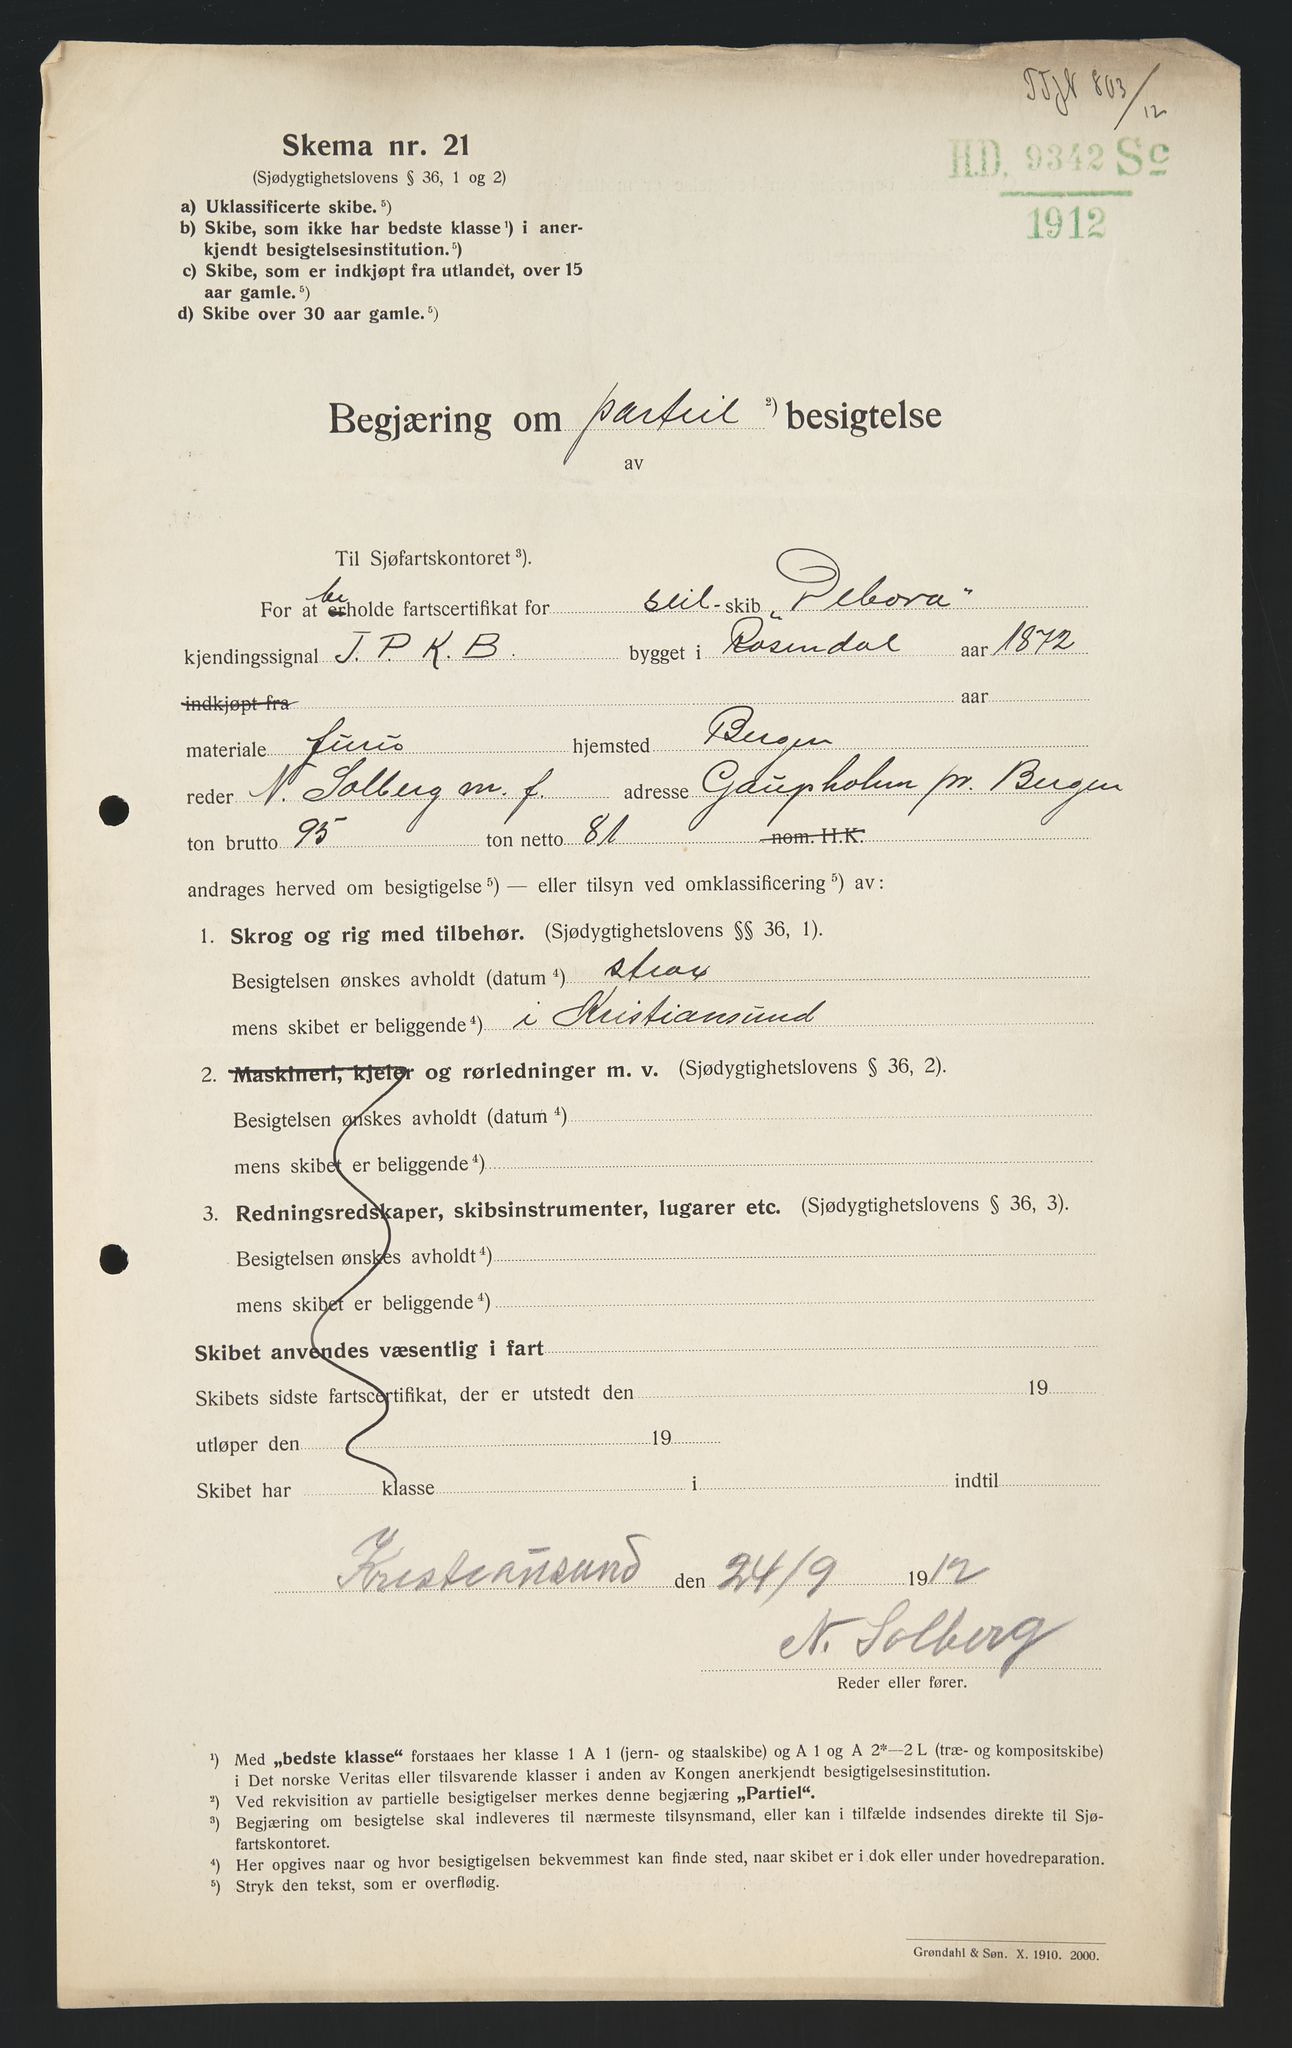 TTjN 803/12
H.D. 9342 Sc
1912
Skema nr. 21
(Sjødygtighetslovens § 36, 1 og 2)
a) Uklassificerte skibe.⁵)
b) Skibe, som ikke har bedste klasse¹) i aner-
kjendt besigtelsesinstitution.⁵)
c) Skibe, som er indkjøpt fra utlandet, over 15
aar gamle.⁵)
d) Skibe over 30 aar gamle.⁵)
Begjæring om partiel ²) besigtelse
av
Til Sjøfartskontoret³).
For at beholde fartscertifikat for seil-skib „Debora"
kjendingssignal J. P. K. B. bygget i Rosendal aar 1872
indkjøpt fra aar
materiale furu hjemsted Bergen
reder N. Solberg m. f. adresse Gaupholm pr. Bergen
ton brutto 95 ton netto 81 nom. H.K.
andrages herved om besigtigelse⁵) — eller tilsyn ved omklassificering⁵) av:
1. Skrog og rig med tilbehør. (Sjødygtighetslovens §§ 36, 1).
Besigtelsen ønskes avholdt (datum⁴) strax
mens skibet er beliggende⁴) i Kristiansund
2. Maskineri, kjeler og rørledninger m. v. (Sjødygtighetslovens § 36, 2).
Besigtelsen ønskes avholdt (datum⁴)
mens skibet er beliggende⁴)
3. Redningsredskaper, skibsinstrumenter, lugarer etc. (Sjødygtighetslovens § 36, 3).
Besigtelsen ønskes avholdt⁴)
mens skibet er beliggende⁴)
Skibet anvendes væsentlig i fart
Skibets sidste fartscertifikat, der er utstedt den 19
utløper den 19
Skibet har klasse i indtil
Kristiansund den 24/9 1912
N. Solberg
Reder eller fører.
¹) Med „bedste klasse“ forstaaes her klasse 1 A 1 (jern- og staalskibe) og A 1 og A 2*—2 L (træ- og kompositskibe)
i Det norske Veritas eller tilsvarende klasser i anden av Kongen anerkjendt besigtigelsesinstitution.
²) Ved rekvisition av partielle besigtigelser merkes denne begjæring „Partiel“.
³) Begjæring om besigtelse skal indleveres til nærmeste tilsynsmand, eller kan i tilfælde indsendes direkte til Sjø-
fartskontoret.
⁴) Her opgives naar og hvor besigtigelsen bekvemmest kan finde sted, naar skibet er i dok eller under hovedreparation.
⁵) Stryk den tekst, som er overflødig.
Grøndahl & Søn. X. 1910. 2000.